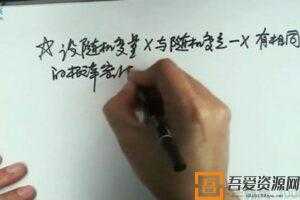 ☆ 设随机变量 X 与随机变量 -X 有相同
的概率密
吾爱资源网